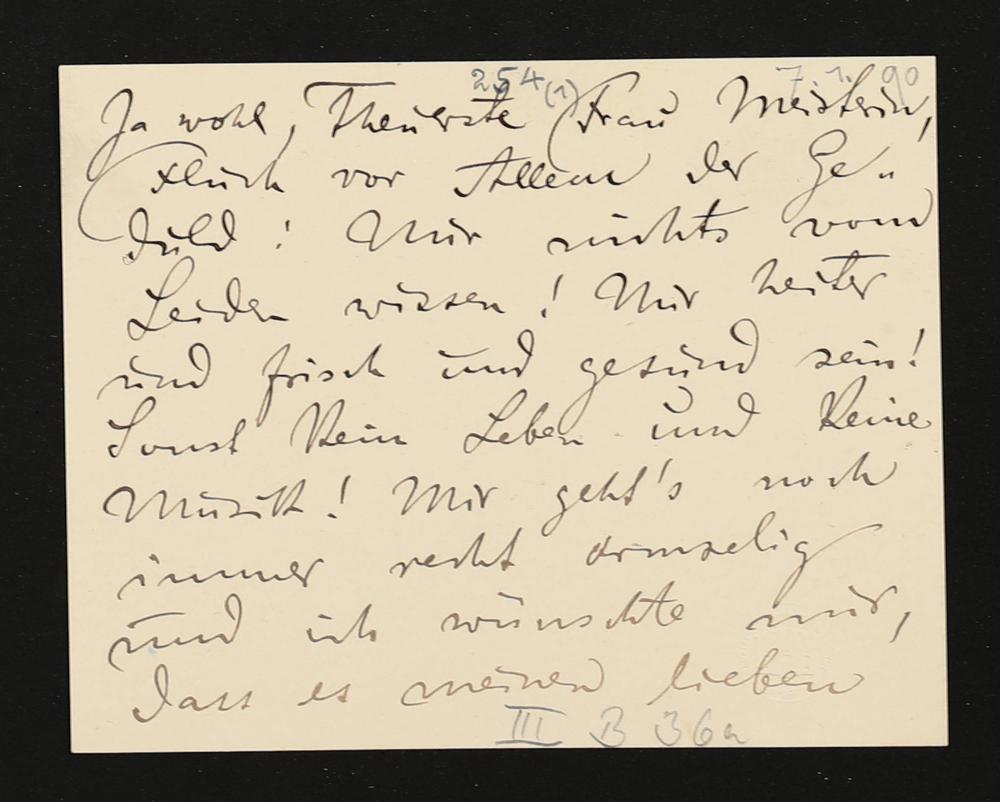 254(1) 7. 1. 90
Ja wohl, Theuerste Frau Meisterin,
Fluch vor Allem der Ge-
duld! Nur nichts vom
Leiden wissen! Nur heiter
und frisch und gesund sein!
Sonst kein Leben und keine
Musik! Mir geht's noch
immer recht armselig
und ich wünschte nur,
dass es meinen lieben
III B 36a